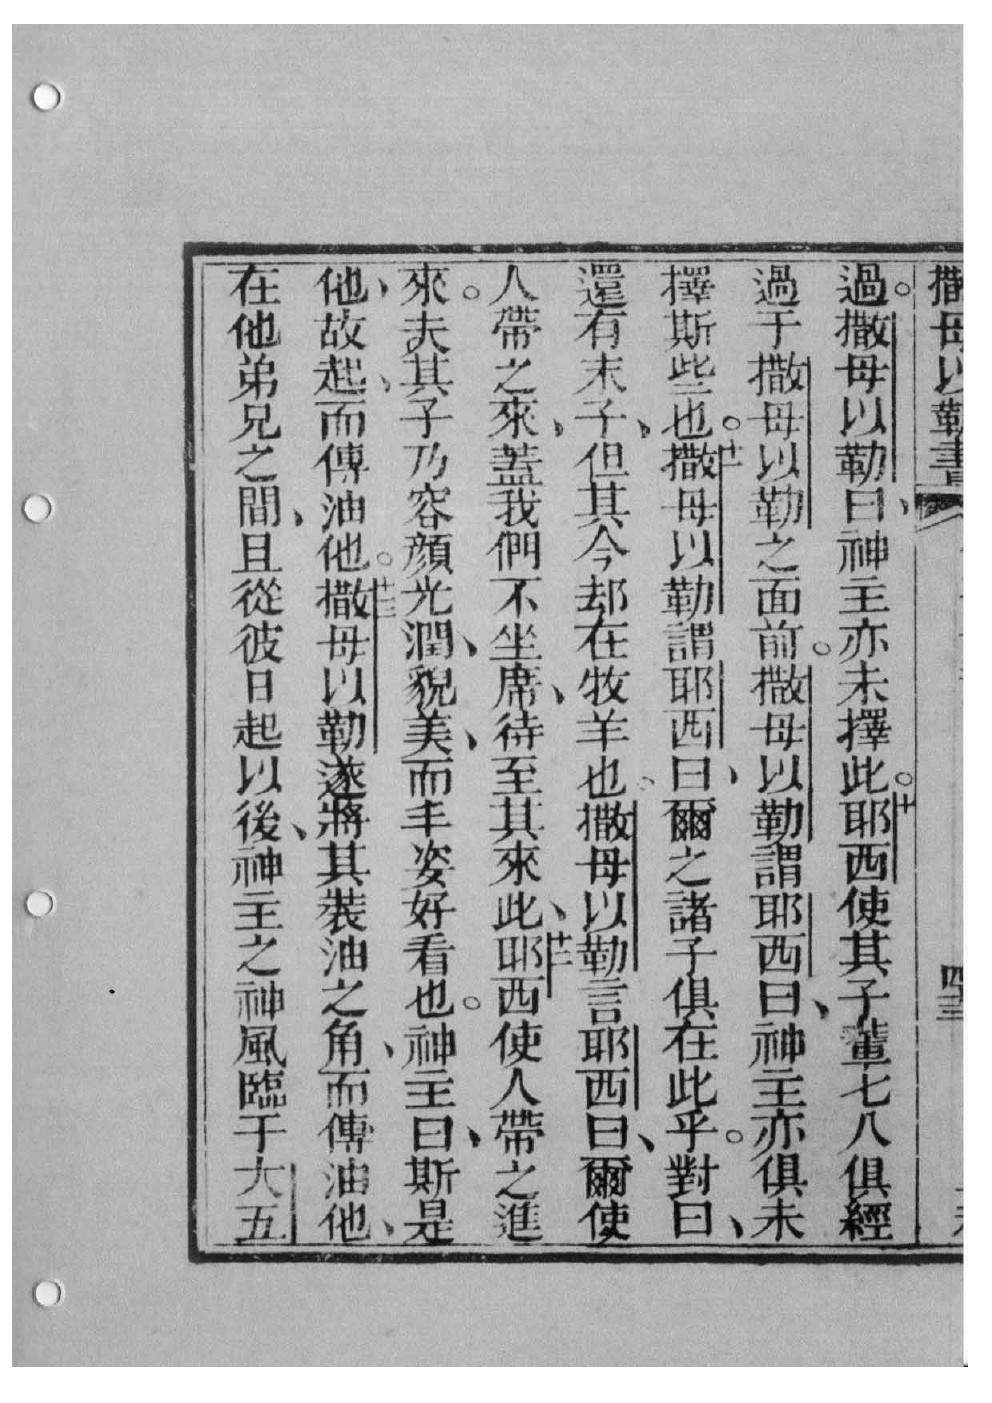 撒母以勒書
四三
過。撒母以勒曰、神主亦未擇此。十耶西使其子輩七八俱經
過于撒母以勒之面前。撒母以勒謂耶西曰、神主亦俱未
擇斯些也。十一撒母以勒謂耶西曰、爾之諸子俱在此乎。對曰、
還有末子、但其今却在牧羊也。撒母以勒言耶西曰、爾使
人帶之來、蓋我們不坐席、待至其來此、十二耶西使人帶之進
來。夫其子乃容顏光潤、貌美、而丰姿好看也。神主曰、斯是
他、故起、而傅油他。十三撒母以勒遂將其裝油之角、而傅油他、
在他弟兄之間、且從彼日起以後、神主之神風臨于大五